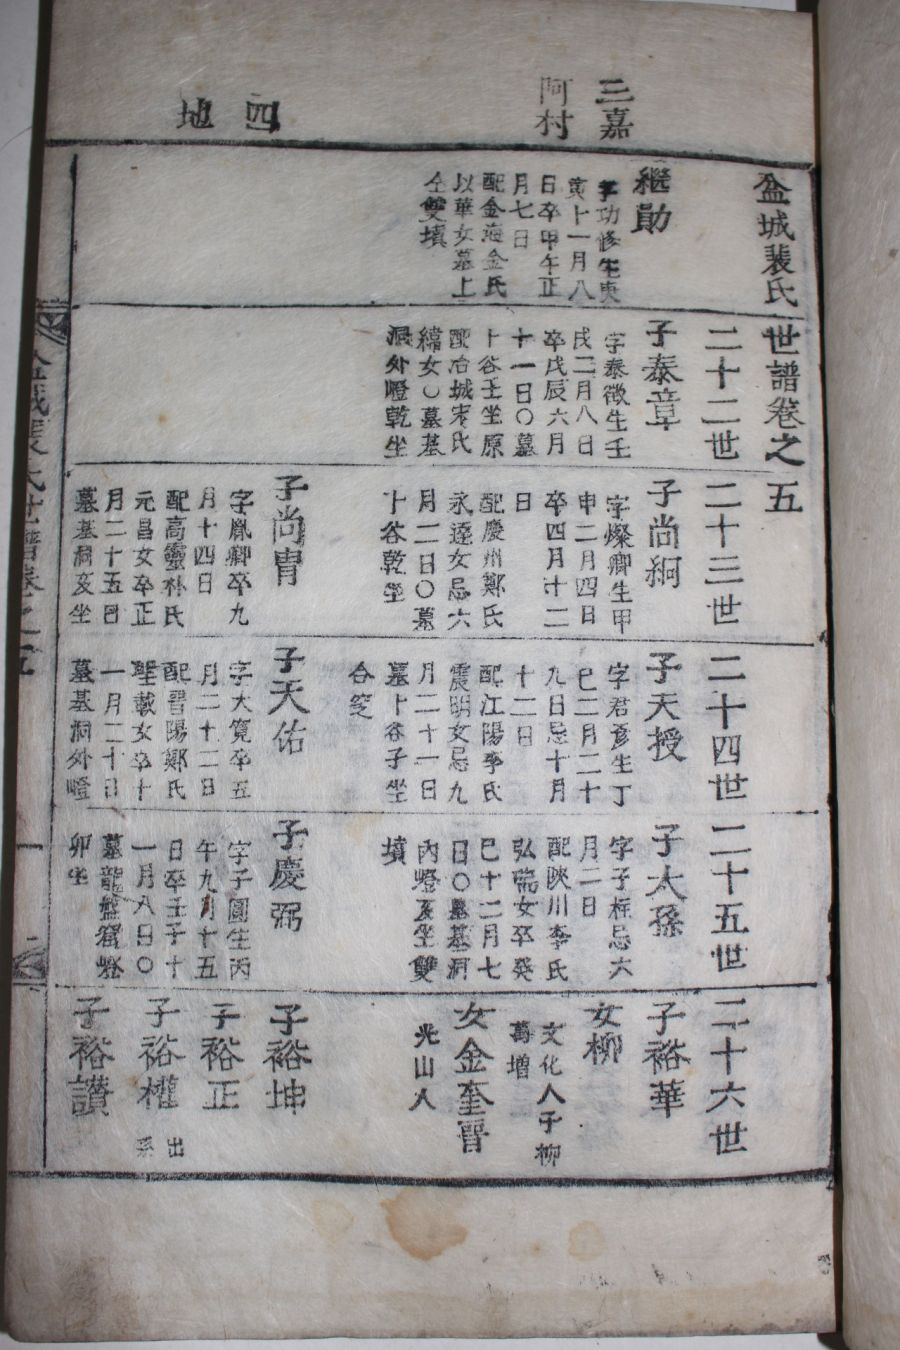 三嘉
阿村
四
地
盆城裴氏世譜卷之五
繼勛
字功修生庚
寅十一月八
日卒甲午正
月七日
配金海金氏
以華女墓上
仝雙墳
二十二世
子泰章
字泰徵生壬
戌二月八日
卒戊辰六月
十一日〇墓
卜谷壬坐原
配冶城宋氏
緯女〇墓基
洞外嶝乾坐
二十三世
子尚絅
字燦卿生甲
申二月四日
卒四月十二
日
配慶州鄭氏
永逵女忌六
月二日〇墓
卜谷乾坐
子尚冑
字胤卿卒九
月十四日
配高靈朴氏
元昌女卒正
月二十五日
墓基洞亥坐
二十四世
子天授
字君彦生丁
巳二月二十
九日忌十月
十二日
配江陽李氏
震明女忌九
月二十一日
墓卜谷子坐
合窆
子天佑
字大寬卒五
月二十二日
配晋陽鄭氏
載女卒十
一月二十日
墓基洞外嶝
二十五世
子太孫
字子 忌六
月二日
配陜川李氏
弘瑞女卒癸
巳十二月七
日〇墓基洞
內嶝亥坐雙
墳
子慶弼
字子圓生丙
午九月十五
日卒壬子十
一月八日〇
墓龍盤
卯坐
二十六世
子裕華
女柳
文化人子柳
萬增
女金奎晋
光山人
子裕坤
子裕正
子裕權
出
系
子裕讃
盆城裴氏世譜卷之五
一